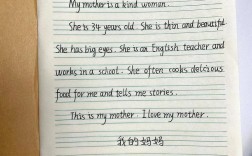 My mother is a kind woman.
She is 34 years old. She is thin and beautiful
She has big eyes. She is an English teacher and
works in a school. She often cooks delicious
food for me and tells me stories.
This is my mother. I love my mother.
我的妈妈